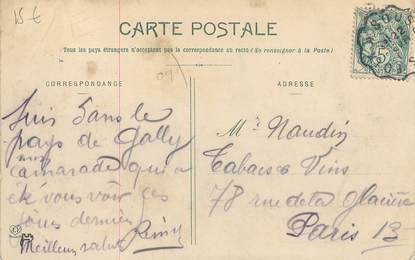 15 €
CARTE POSTALE
Tous les pays étrangers n'acceptent pas la correspondance au recto (Se renseigner à la Poste)
CORRESPONDANCE
Suis dans le
pays de Gally
mon
camarade qui a
été vous voir ces
jours derniers
Meilleurs saluts Rémy
ADRESSE
Mr Naudin
Tabacs & Vins
78 rue de la Glacière
Paris 13e